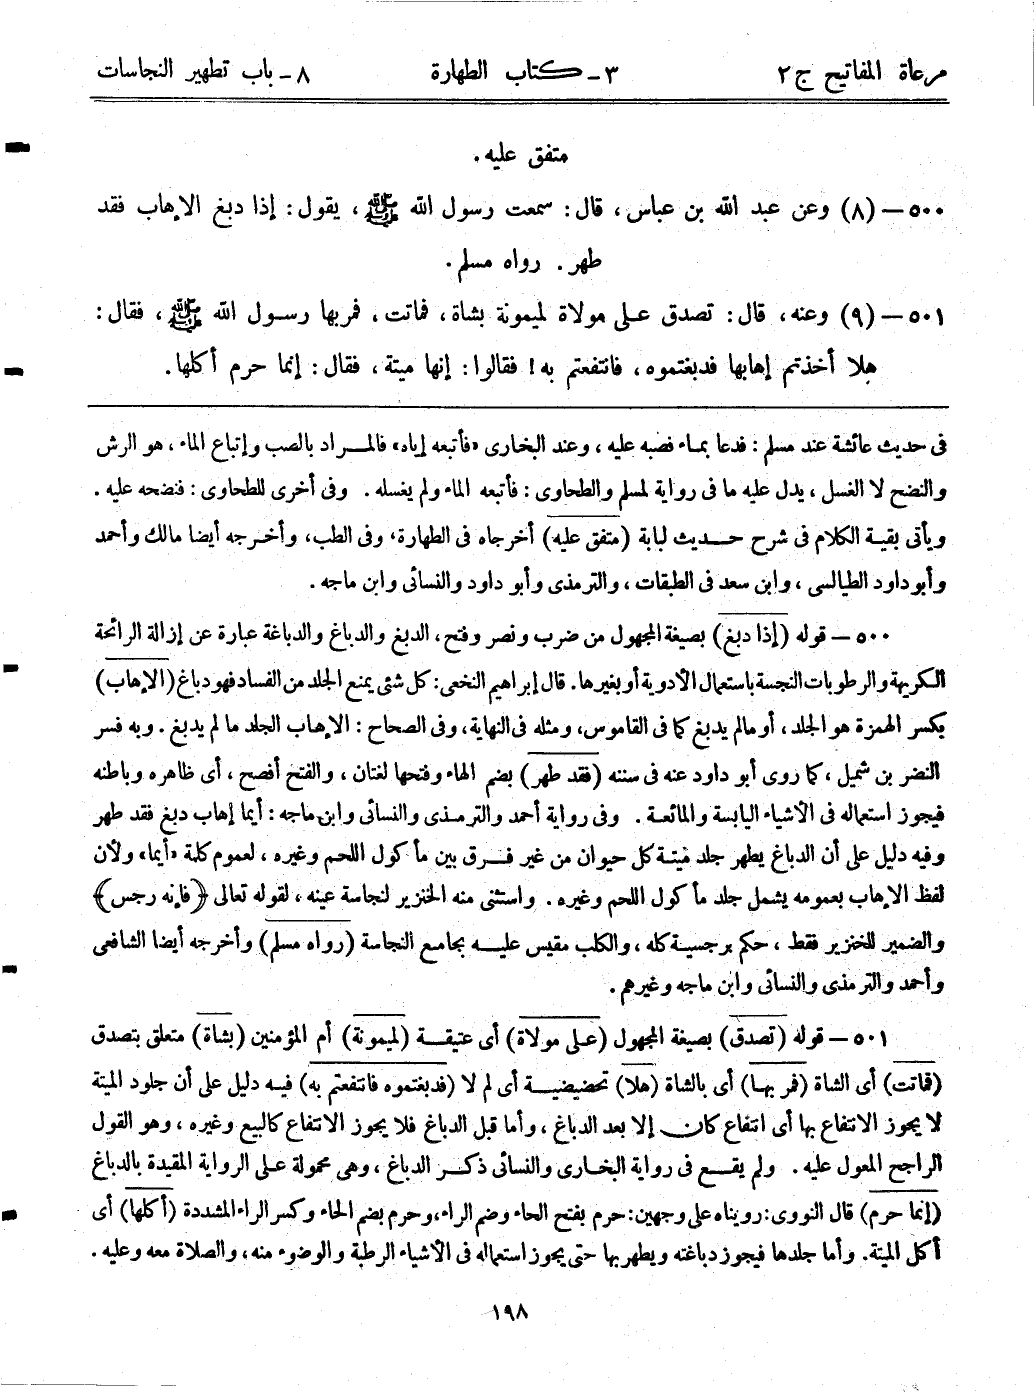 مرعاة المفاتيح ج٢ ٣ــ كتاب الطهارة ٨ــ باب تطهير النجاسات
متفق عليه.
٥٠٠ – (٨) وعن عبد الله بن عباس، قال: سمعت رسول الله ﷺ، يقول: إذا دبغ الإهاب فقد
طهر. رواه مسلم.
٥٠١ – (٩) وعنه، قال: تصدق على مولاة لميمونة بشاة، فماتت، فمربها رسول الله ﷺ، فقال:
هلا أخذتم إهابها فدبغتموه، فانتفعتم به! فقالوا: إنها ميتة، فقال: إنما حرم أكلها.
فى حديث عائشة عند مسلم: فدعا بماء فصبه عليه، وعند البخارى «فأتبعه إياه» فالمراد بالصب وإتباع الماء، هو الرش
والنضح لا الغسل، يدل عليه ما فى رواية لمسلم والطحاوى: فأتبعه الماء ولم يغسله. وفى أخرى للطحاوى: فنضحه عليه.
ويأتى بقية الكلام فى شرح حديث لبابة (متفق عليه) أخرجاه فى الطهارة، وفى الطب، وأخرجه أيضا مالك وأحمد
وأبوداود الطيالسى، وابن سعد فى الطبقات، والترمذى وأبو داود والنسائى وابن ماجه.
٥٠٠ – قوله (إذا دبغ) بصيغة المجهول من ضرب ونصر وفتح، الدبغ والدباغ والدباغة عبارة عن إزالة الرائحة
الكريهة والرطوبات النجسة باستعمال الأدوية أو بغيرها. قال إبراهيم النخعى: كل شئى يمنع الجلد من الفساد فهو دباغ (الإهاب)
بكسر الهمزة هو الجلد، أو مالم يدبغ كما فى القاموس، ومثله فى النهاية، وفى الصحاح: الإهاب الجلد ما لم يدبغ. وبه فسر
النضر بن شميل، كما روى أبو داود عنه فى سننه (فقد طهر) بضم الهاء وفتحها لغتان، والفتح أفصح، أى ظاهره وباطنه
فيجوز استعماله فى الأشياء اليابسة والمائعة. وفى رواية أحمد والترمذى والنسائى وابن ماجه: أيما إهاب دبغ فقد طهر
وفيه دليل على أن الدباغ يطهر جلد ميتة كل حيوان من غير فرق بين مأكول اللحم وغيره، لعموم كلمة «أيما» ولأن
لفظ الإهاب بعمومه يشمل جلد مأكول اللحم وغيره. واستثنى منه الخنزير لنجاسة عينه، لقوله تعالى ﴿فإنه رجس﴾
والضمير للخنزير فقط، حكم برجسية كله، والكلب مقيس عليه بجامع النجاسة (رواه مسلم) وأخرجه أيضا الشافعى
وأحمد والترمذى والنسائى وابن ماجه وغيرهم.
٥٠١ – قوله (تصدق) بصيغة المجهول (على مولاة) أى عتيقة (لميمونة) أم المؤمنين (بشاة) متعلق بتصدق
(فماتت) أى الشاة (فمر بها) أى بالشاة (هلا) تحضيضية أى لم لا (فدبغتموه فانتفعتم به) فيه دليل على أن جلود الميتة
لا يجوز الانتفاع بها أى انتفاع كان إلا بعد الدباغ، وأما قبل الدباغ فلا يجوز الانتفاع كالبيع وغيره، وهو القول
الراجح المعول عليه. ولم يقع فى رواية البخارى والنسائى ذكر الدباغ، وهى محمولة على الرواية المقيدة بالدباغ
(إنما حرم) قال النووى: رويناه على وجهين: حرم بفتح الحاء وضم الراء، وحرم بضم الحاء وكسر الراء المشددة (أكلها) أى
أكل الميتة. وأما جلدها فيجوز دباغته ويطهر بها حتى يجوز استعماله فى الأشياء الرطبة والوضوء منه، والصلاة معه وعليه.
١٩٨